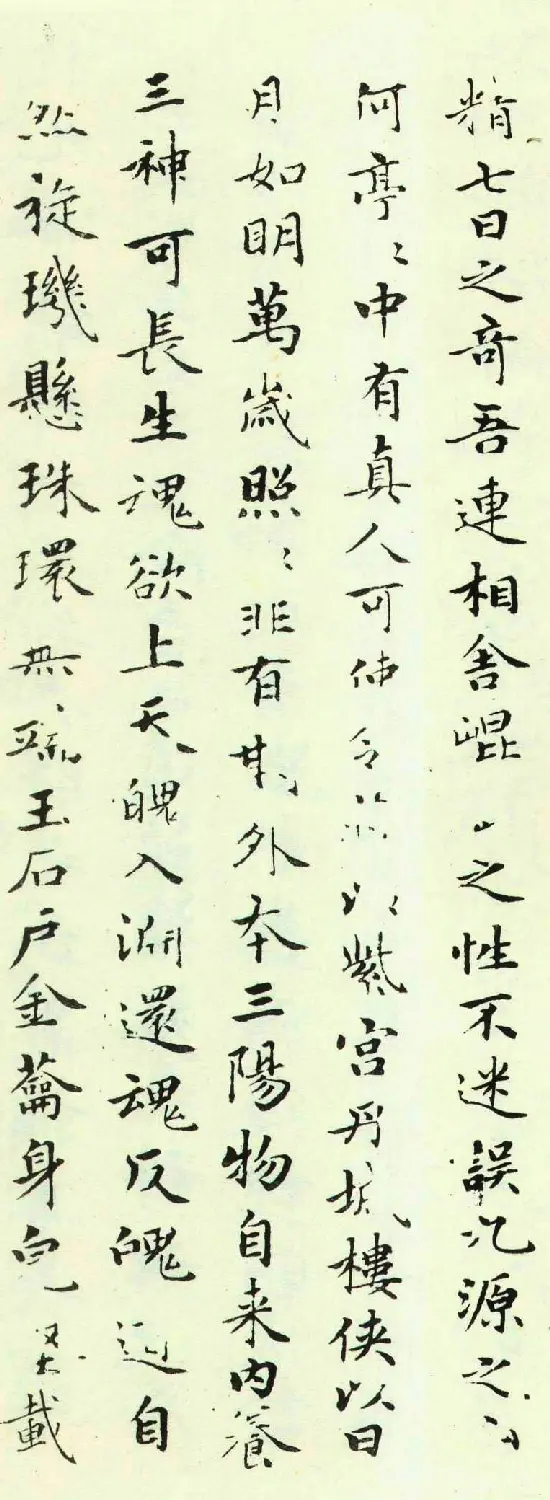 精七日之奇吾連相舍崐之性不迷誤九源之
何亭〻中有真人可使令以紫宮丹城樓俠以日
月如明萬歲照〻非有期外本三陽物自来内養
三神可長生魂欲上天魄入淵還魂反魄道自
然旋璣懸珠環無端玉石戶金蘥身完堅載